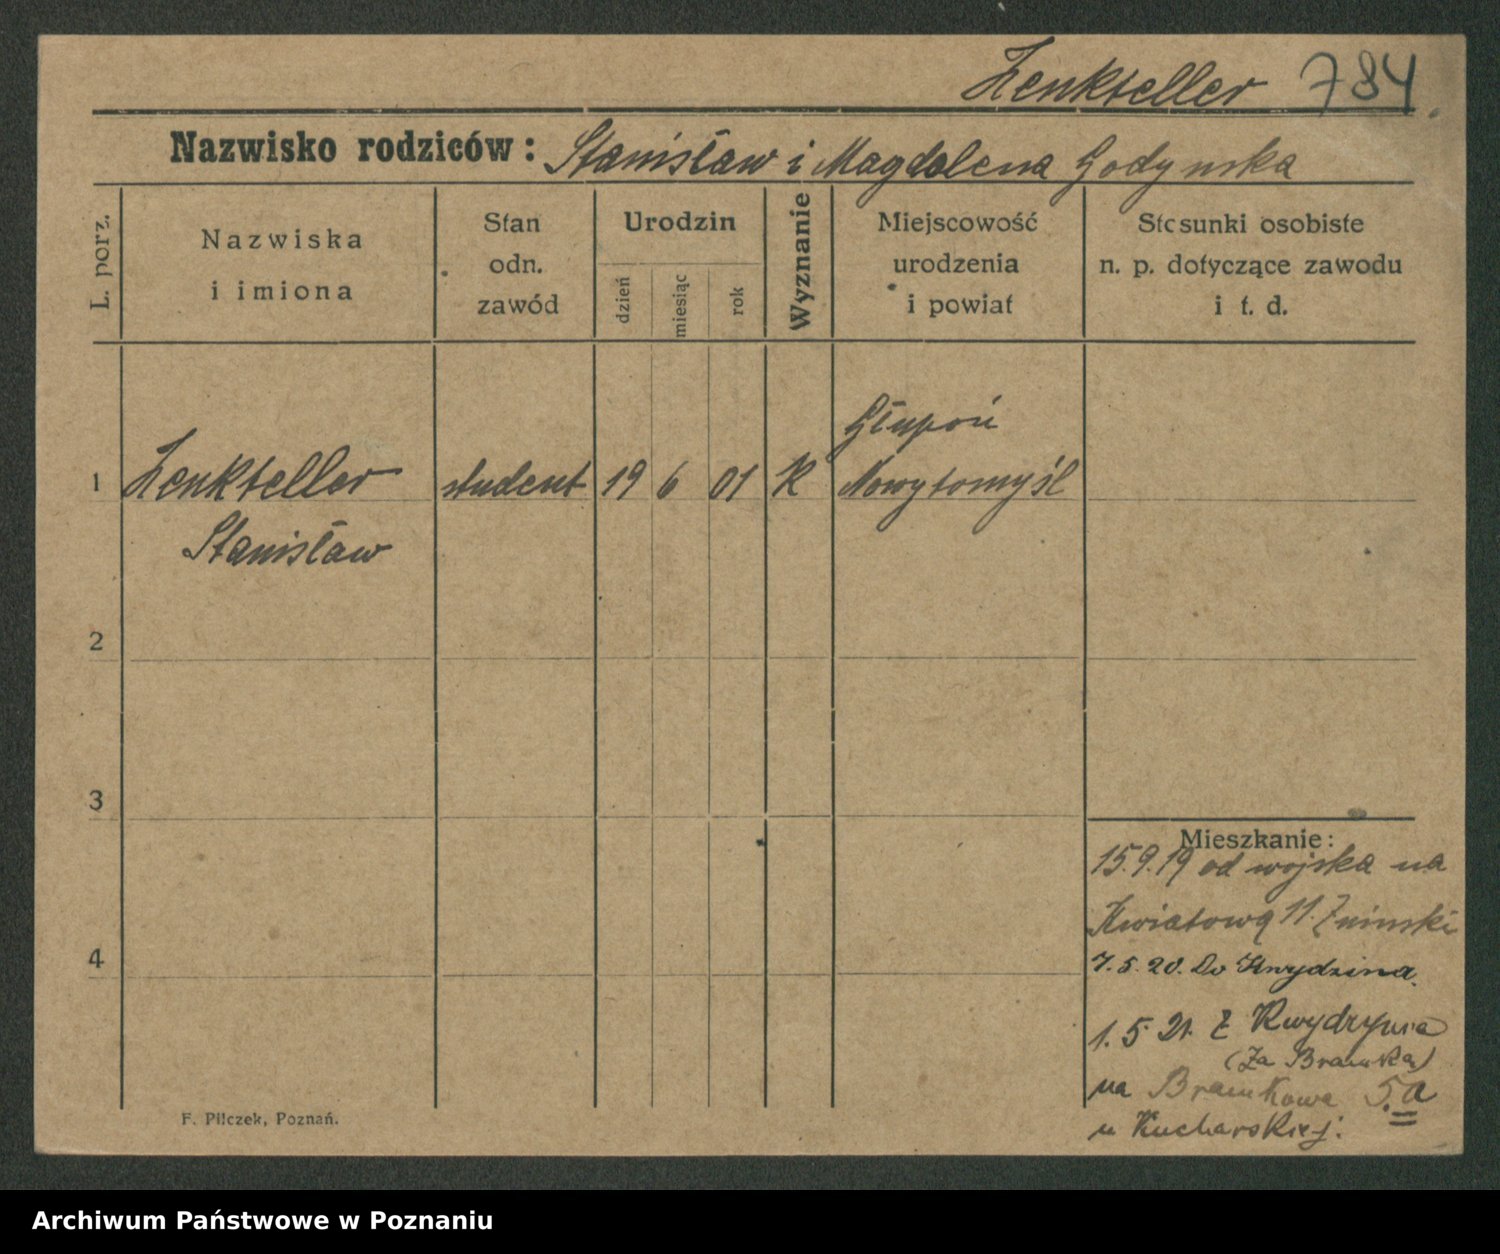 Zenkteller 784
Nazwisko rodziców: Stanisław i Magdalena Godynska
L. porz.
Nazwiska
i imiona
Stan
odn.
zawód
Urodzin
dzień
miesiąc
rok
Wyznanie
Miejscowość
urodzenia
i powiat
Stosunki osobiste
n. p. dotyczące zawodu
i t. d.
Głupoń
1 Zenkteller student 19 6 01 K Nowytomyśl
Stanisław
2
3
4
Mieszkanie:
15.9.19 od wojska na
Kwiatową 11. Zninski
7.5.20. Do
1.5 21. Z
(Za Bramką)
na Bramkowa 5.a
u Kucharskiej.
F. Pilczek, Poznań.
Archiwum Państwowe w Poznaniu